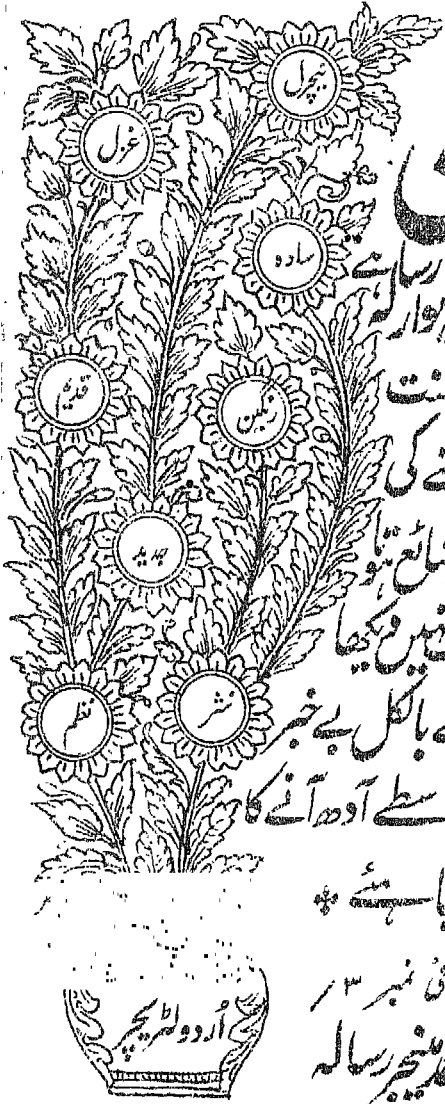 نیچرل
غزل
سادہ
قدیم
رنگین
جدید
نظم
نثر
اُردو لٹریچر
کی
ضائع ہو
نہیں دیکھا
بالکل بے خبر
سطے آدھ آنے کا
نمبر ۳
منیجر رسالہ